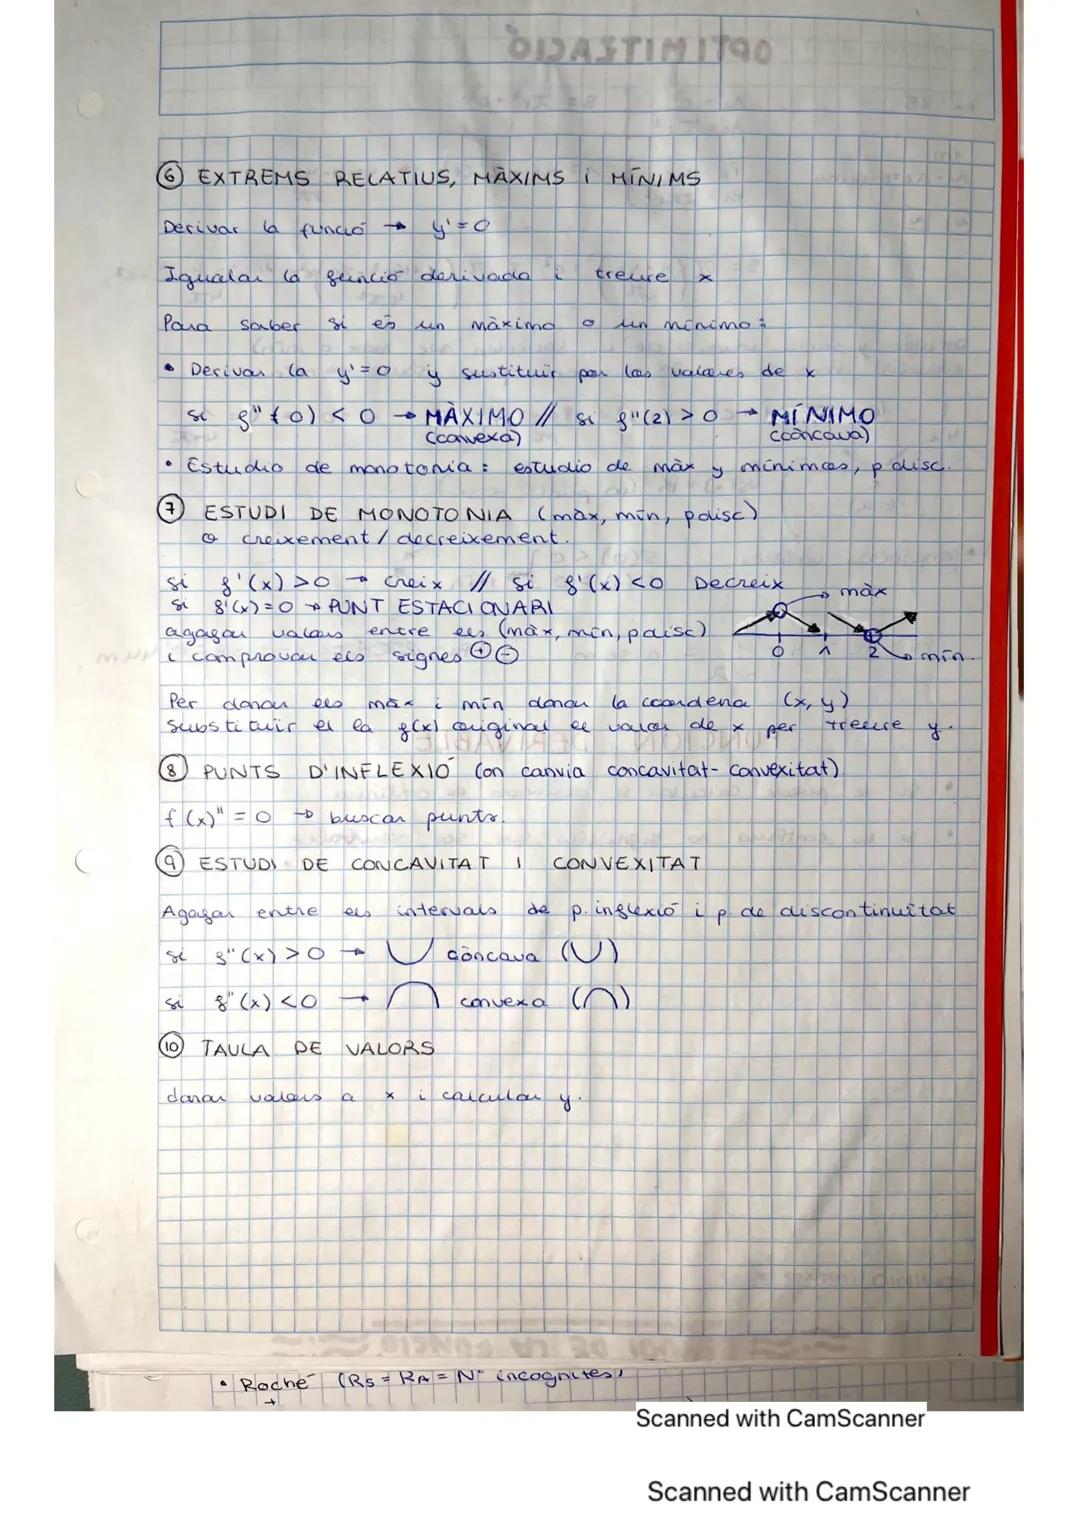 OPTIMITZACIÓ
⑥ EXTREMS RELATIUS, MÀXIMS i MÍNIMS
Derivar la funció → y'=0
Igualar la funció derivada i treure x
Para saber si es un màximo o un mínimo:
• Derivar la y'=0 y sustituir por los valores de x
si f''(0) < 0 → MÀXIMO // si f''(2) > 0 → MÍNIMO
(convexa) (còncava)
• Estudio de monotonia: estudio de màx y mínimos, p disc.
⑦ ESTUDI DE MONOTONIA (màx, mín, pdisc)
o creixement / decreixement.
si f'(x) > 0 → creix // si f'(x) < 0 Decreix
si f'(x) = 0 → PUNT ESTACIONARI
agagar valors entre els (màx, mín, pdisc)
i comprovar els signes ⊕ ⊖
màx
0 1 2 mín.
Per donar els màx i mín donar la coordena (x, y)
Substituir el la f(x) original el valor de x per treure y.
⑧ PUNTS D'INFLEXIÓ (on canvia concavitat-convexitat)
f(x)'' = 0 → buscar punts.
⑨ ESTUDI DE CONCAVITAT I CONVEXITAT
Agagar entre els intervals de p. inflexió i p. de discontinuïtat
si f''(x) > 0 → ∪ còncava (∪)
si f''(x) < 0 → ∩ convexa (∩)
⑩ TAULA DE VALORS
donar valors a x i calcular y.
• Roché (Rs = RA = Nº incognites)
Scanned with CamScanner
Scanned with CamScanner